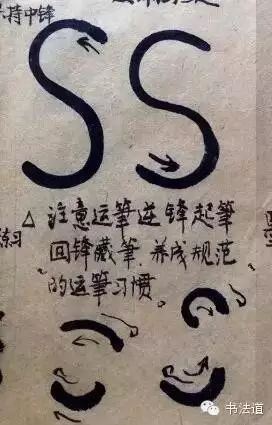 持中锋
SS
△ 注意运筆逆锋起筆
回锋藏筆.养成规范
的运筆习惯。
练习
书法道